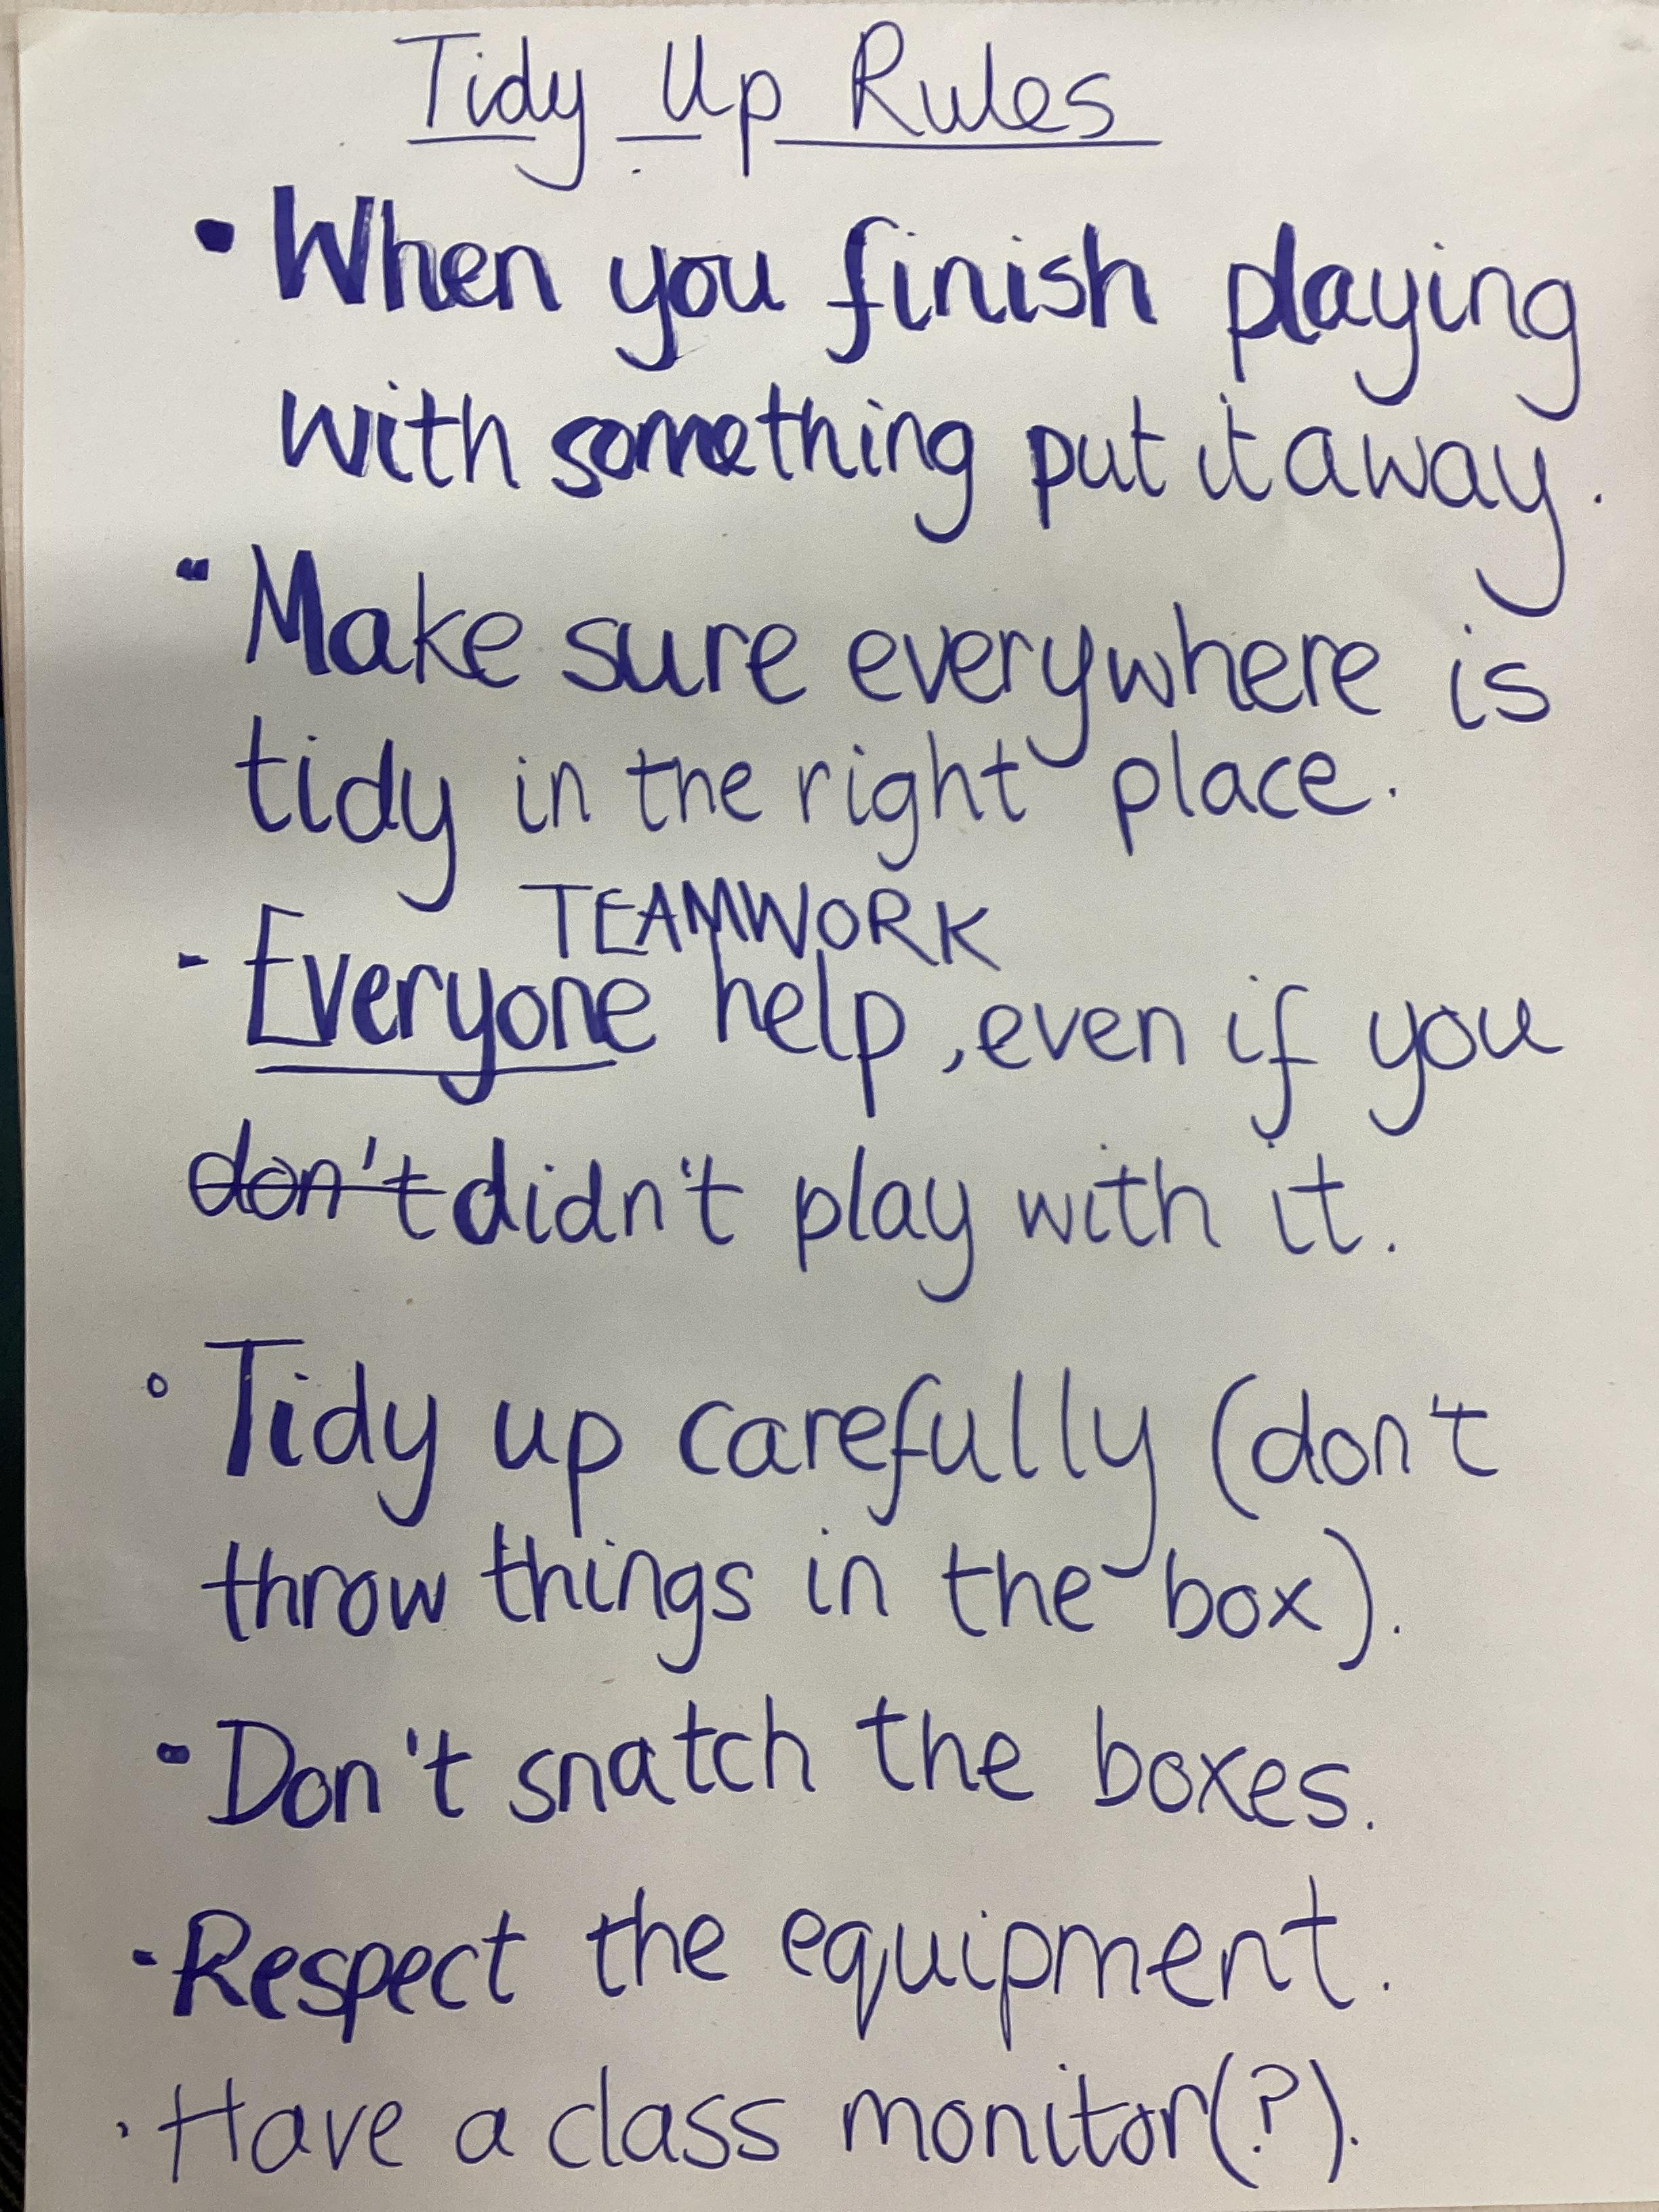 Tidy Up Rules
• When you finish playing
with something put it away.
• Make sure everywhere is
tidy in the right place.
TEAMWORK
- Everyone help, even if you
don't didn't play with it.
• Tidy up carefully (don't
throw things in the box).
• Don't snatch the boxes.
• Respect the equipment.
• Have a class monitor(?).